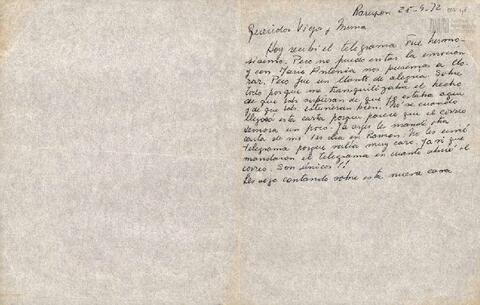 Rawson 25-9-72
Queridos Viejo y Mema
Hoy recibí el telegrama. Fue hermo-
sísimo. Pero no puedo evitar la emoción
y con María Antonia nos pusimos a llo-
rar. Pero fue un llanto de alegría. Sobre
todo porque me tranquilizaba el hecho
de que uds supieran de que yo estaba aquí
y de que uds estuvieran bien. No sé cuando
llegará esta carta porque parece que el correo
demora un poco. Ya ayer le mandé otra
carta de mi 1er día en Rawson. No les envié
telegrama porque salía muy caro. Ya vi que
mandaron el telegrama en cuanto abrió el
correo. Son únicos!!
Les sigo contando sobre esta nueva casa